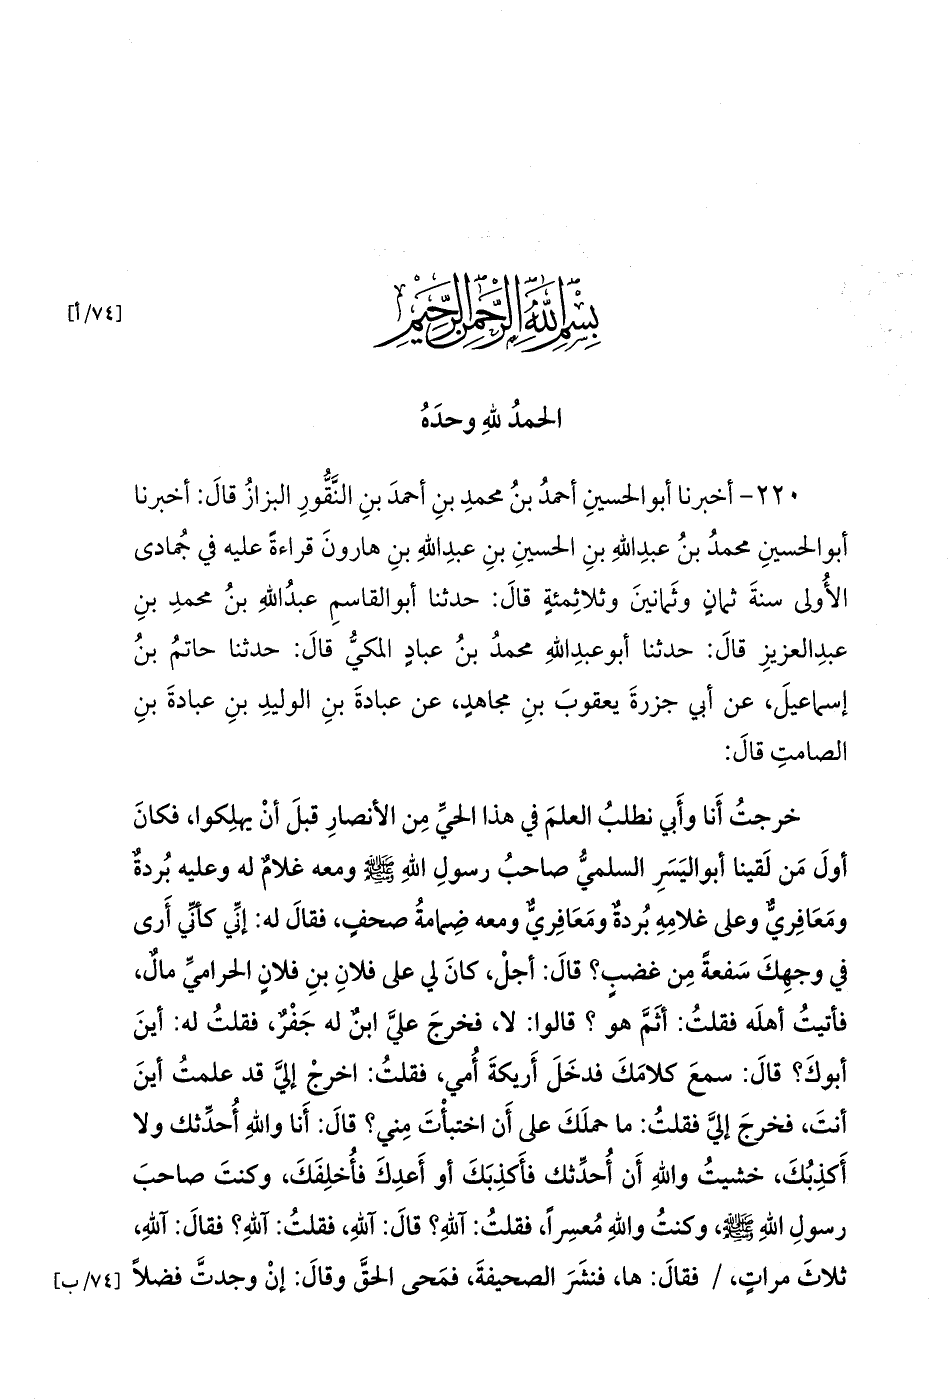 [٧٤/أ]
بِسْمِ اللَّهِ الرَّحْمَنِ الرَّحِيمِ
الحمدُ للهِ وحدَهُ
٢٢٠- أخبرنا أبوالحسينِ أحمدُ بنُ محمدِ بنِ أحمدَ بنِ النَّقُّورِ البزازُ قالَ: أخبرنا
أبوالحسينِ محمدُ بنُ عبدِاللهِ بنِ الحسينِ بنِ عبدِاللهِ بنِ هارونَ قراءةً عليه في جُمادى
الأُولى سنةَ ثمانٍ وثَمانينَ وثلاثِمئةٍ قالَ: حدثنا أبوالقاسمِ عبدُاللهِ بنُ محمدِ بنِ
عبدِالعزيزِ قالَ: حدثنا أبوعبدِاللهِ محمدُ بنُ عبادٍ المكيُّ قالَ: حدثنا حاتمُ بنُ
إسماعيلَ، عن أبي جزرةَ يعقوبَ بنِ مجاهدٍ، عن عبادةَ بنِ الوليدِ بنِ عبادةَ بنِ
الصامتِ قالَ:
خرجتُ أَنا وأَبي نطلبُ العلمَ في هذا الحيِّ مِن الأنصارِ قبلَ أنْ يهلِكوا، فكانَ
أولَ مَن لَقينا أبواليَسَرِ السلميُّ صاحبُ رسولِ اللهِ ﷺ ومعه غلامٌ له وعليه بُردةٌ
ومَعَافِريٌّ وعلى غلامِهِ بُردةٌ ومَعَافِريٌّ ومعه ضِمامةُ صحفٍ، فقالَ له: إنِّي كأنِّي أَرى
في وجهِكَ سَفعةً مِن غضبٍ؟ قالَ: أجلْ، كانَ لي على فلانِ بنِ فلانٍ الحراميِّ مالٌ،
فأتيتُ أهلَه فقلتُ: أثَمَّ هو ؟ قالوا: لا، فخرجَ عليَّ ابنٌ له جَفْرٌ، فقلتُ له: أينَ
أبوكَ؟ قالَ: سمعَ كلامَكَ فدخَلَ أَريكةَ أُمي، فقلتُ: اخرجْ إليَّ قد علمتُ أينَ
أنتَ، فخرجَ إليَّ فقلتُ: ما حملَكَ على أَن اختبأْتَ مِني؟ قالَ: أَنا واللهِ أُحدِّثك ولا
أَكذِبُكَ، خشيتُ واللهِ أَن أُحدِّثك فأَكذِبَكَ أو أَعدِكَ فأُخلِفَكَ، وكنتَ صاحبَ
رسولِ اللهِ ﷺ، وكنتُ واللهِ مُعسِراً، فقلتُ: آللهِ؟ قالَ: آللهِ، فقلتُ: آللهِ؟ فقالَ: آللهِ،
ثلاثَ مراتٍ، / فقالَ: ها، فنشَرَ الصحيفةَ، فمَحى الحقَّ وقالَ: إنْ وجدتَّ فضلاً [٧٤/ب]